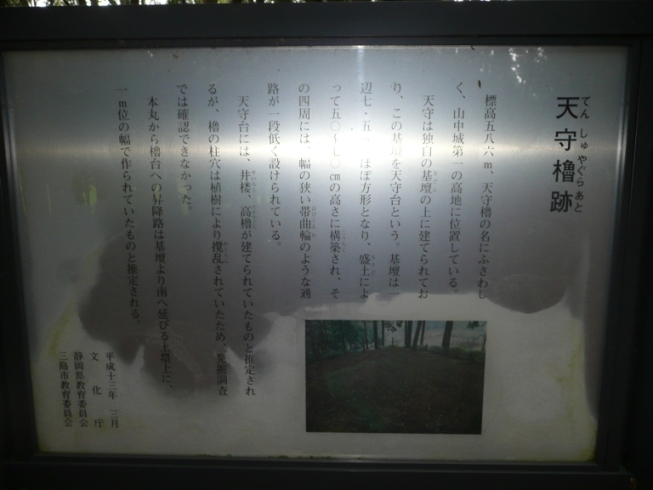 天守櫓跡
てん しゅ やぐら あと
標高五八六m、天守櫓の名にふさわし
く、山中城第一の高地に位置している。
天守は独自の基壇の上に建てられてお
り、この基壇を天守台という。基壇は一
辺七・五 ほぼ方形となり、盛土によ
って五〇~七〇cmの高さに構築され、そ
の四周には、幅の狭い帯曲輪のような通
路が一段低く設けられている。
天守台には、井楼、高櫓が建てられていたものと推定され
るが、櫓の柱穴は植樹により撹乱されていたため、発掘調査
では確認できなかった。
本丸から櫓台への昇降路は基壇より南へ延びる土塁上に、
一m位の幅で作られていたものと推定される。
平成十三年 三月
文化庁
静岡県教育委員会
三島市教育委員会